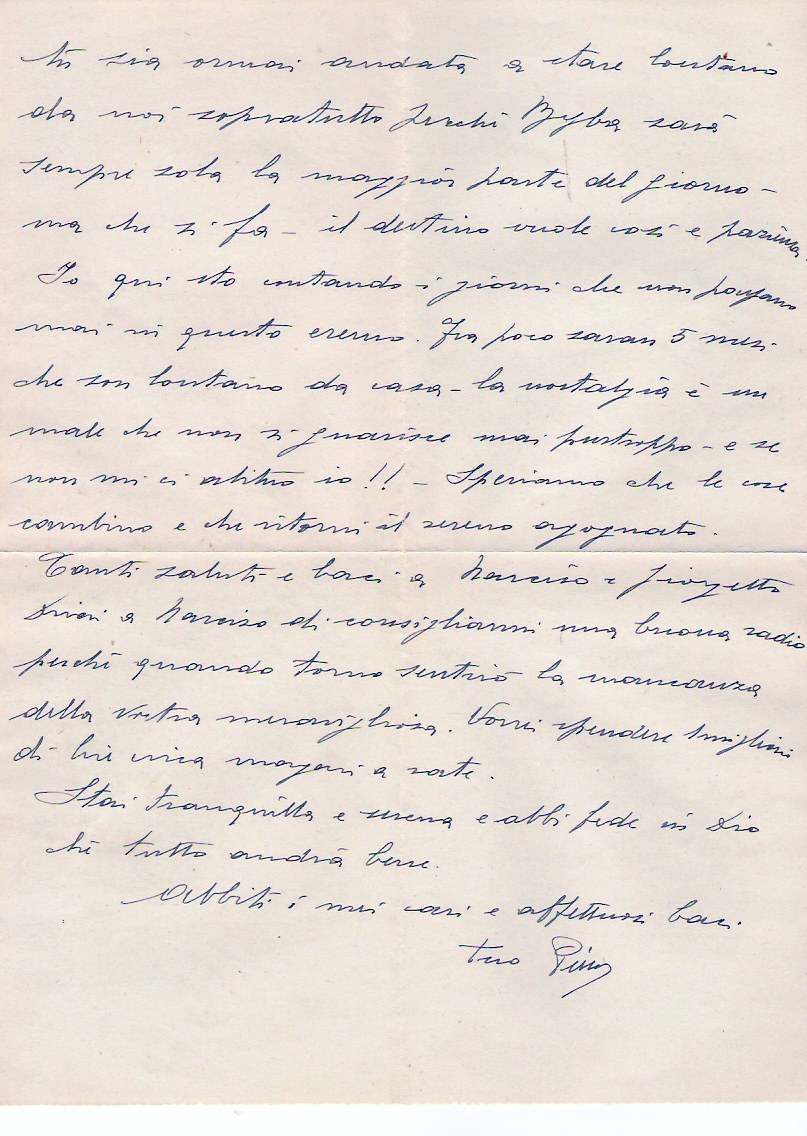 tu sia ormai andata a stare lontano
da noi sopratutto perché Byba sarà
sempre sola la maggior parte del giorno -
ma che si fa - il destino vuole così e pazienza.
Io qui sto contando i giorni che non passano
mai in questo eremo. Fra poco saran 5 mesi
che son lontano da casa - la nostalgia è un
male che non si guarisce mai purtroppo - e se
non mi ci abituo io!! - Speriamo che le cose
cambino e che ritorni il sereno agognato.
Tanti saluti e baci a Narciso e Giorgetto
Dirai a Narciso di consigliarmi una buona radio
perché quando torno sentirò la mancanza
della vostra meravigliosa. Vorrei spendere
di lire circa magari a rate.
Stai tranquilla e serena e abbi fede in Dio
che tutto andrà bene.
Abbiti i miei cari e affettuosi baci.
tuo